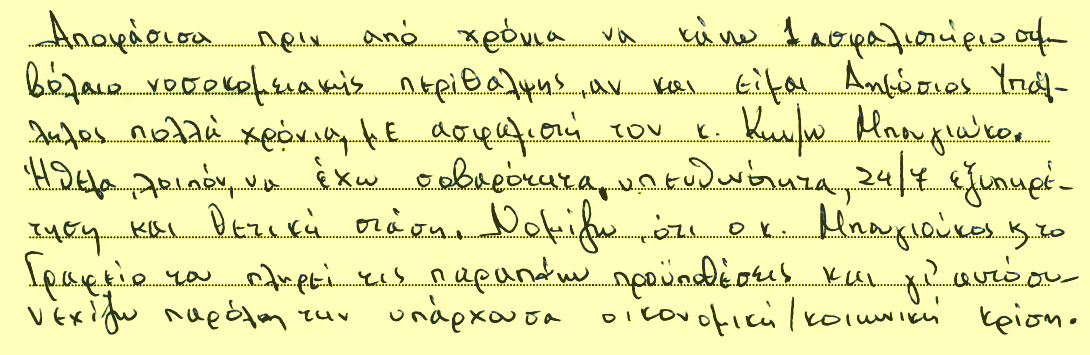 Αποφάσισα πριν από χρόνια να κάνω 1 ασφαλιστήριο συμ-
βόλαιο νοσοκομειακής περίθαλψης, αν και είμαι Δημόσιος Υπάλ-
ληλος πολλά χρόνια, με ασφαλιστή τον κ. Μπαγιώκο.
Ήθελα, λοιπόν, να έχω σοβαρότητα, υπευθυνότητα, 24/7 εξυπηρέ-
τηση και θετική στάση. Νομίζω, ότι ο κ. Μπαγιούκος κ το
Γραφείο του πληρεί τις παραπάνω προϋποθέσεις και γι' αυτό συ-
νεχίζω παρόλη την υπάρχουσα οικονομική/κοινωνική κρίση.